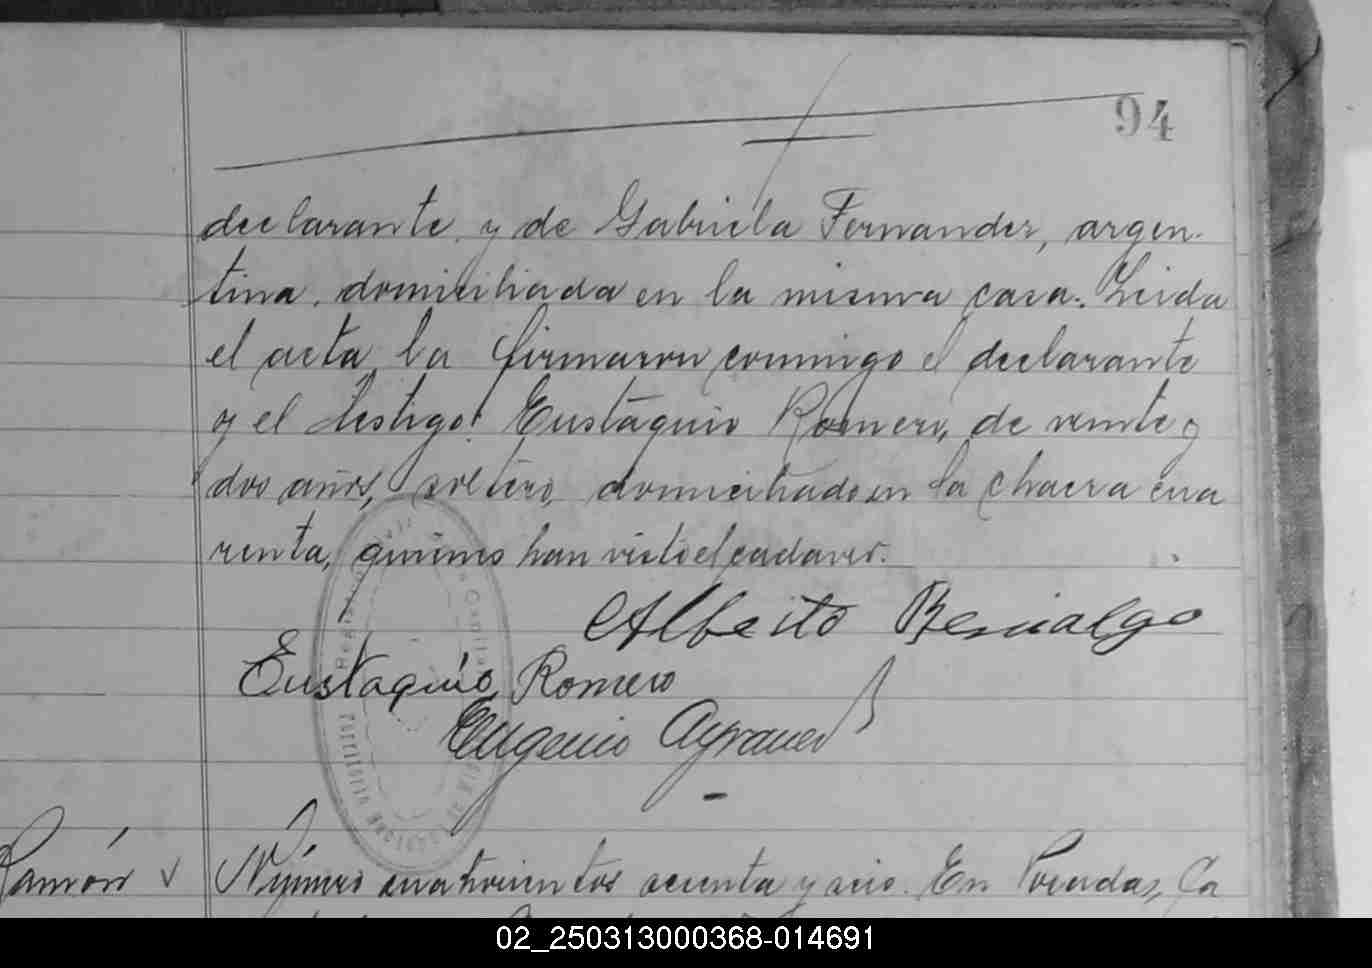 94
declarante y de Gabriela Fernandez, argen-
tina, domiciliada en la misma casa. Leida
el acta, la firmaron conmigo el declarante
y el testigo: Eustáquio Romero, de veinte y
dos años, soltero, domiciliado en la chacra cua
renta, quienes han visto el cadaver.
Alberto
Eustaquio Romero
Eugenio
Ramón
Número cuatrocientos sesenta y seis. En Posadas, Ca
02_250313000368-014691